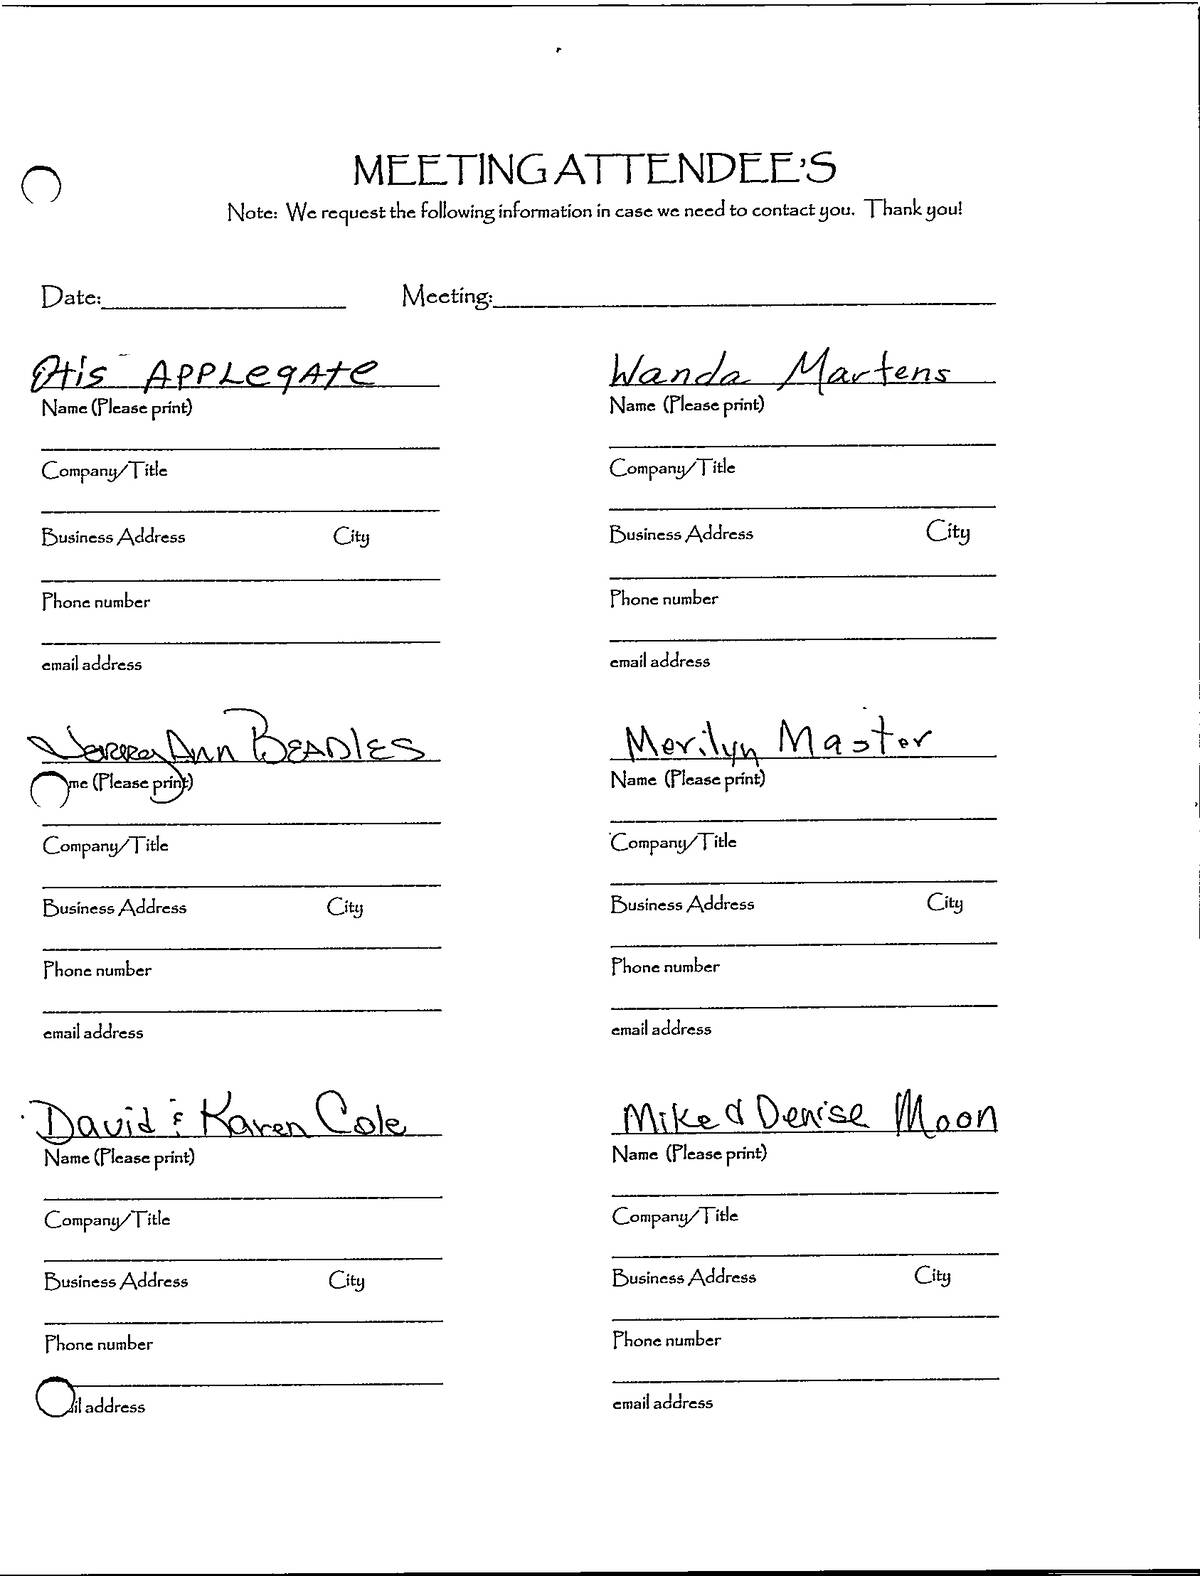 MEETING ATTENDEE'S
Note: We request the following information in case we need to contact you. Thank you!
Date: Meeting:
Otis APPLegAte
Name (Please print)
Company/Title
Business Address City
Phone number
email address
Wanda Martens
Name (Please print)
Company/Title
Business Address City
Phone number
email address
Ann BEADLES
me (Please print)
Company/Title
Business Address City
Phone number
email address
Merilyn Master
Name (Please print)
Company/Title
Business Address City
Phone number
email address
David & Karen Cole
Name (Please print)
Company/Title
Business Address City
Phone number
il address
Mike & Denise Moon
Name (Please print)
Company/Title
Business Address City
Phone number
email address